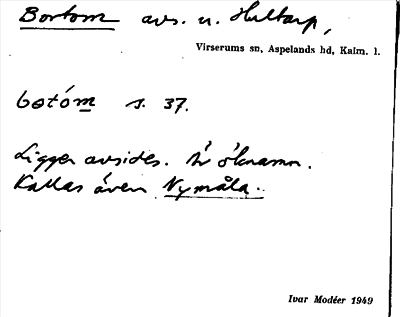 Bortom avs. u. Hultarp,
Virserums sn, Aspelands hd, Kalm. l.
botóm s. 37.
Ligger avsides. Är öknamn.
Kallas även Nymåla.
Ivar Modéer 1949